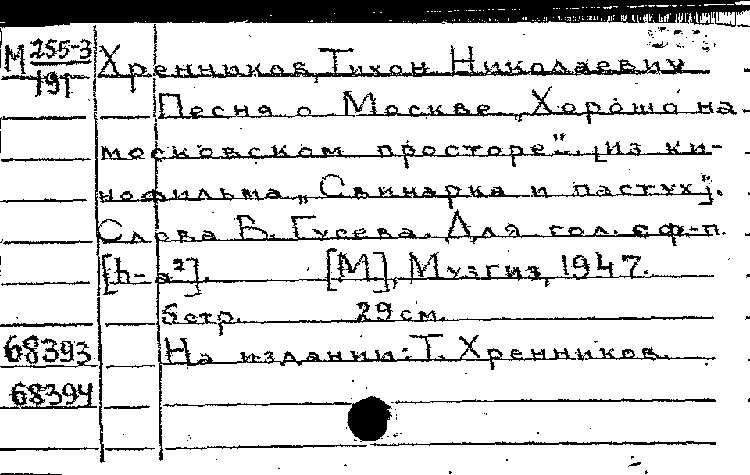 М 255-3
191
Хренников, Тихон Николаевич
Песня о Москве „Хорошо на
московском просторе". [Из ки-
нофильма „Свинарка и пастух"].
Слова В. Гусева. Для гол. с ф-п.
[h-a²]. [М], Музгиз, 1947.
5 стр. 29 см.
68393 На издании: Т. Хренников.
68394